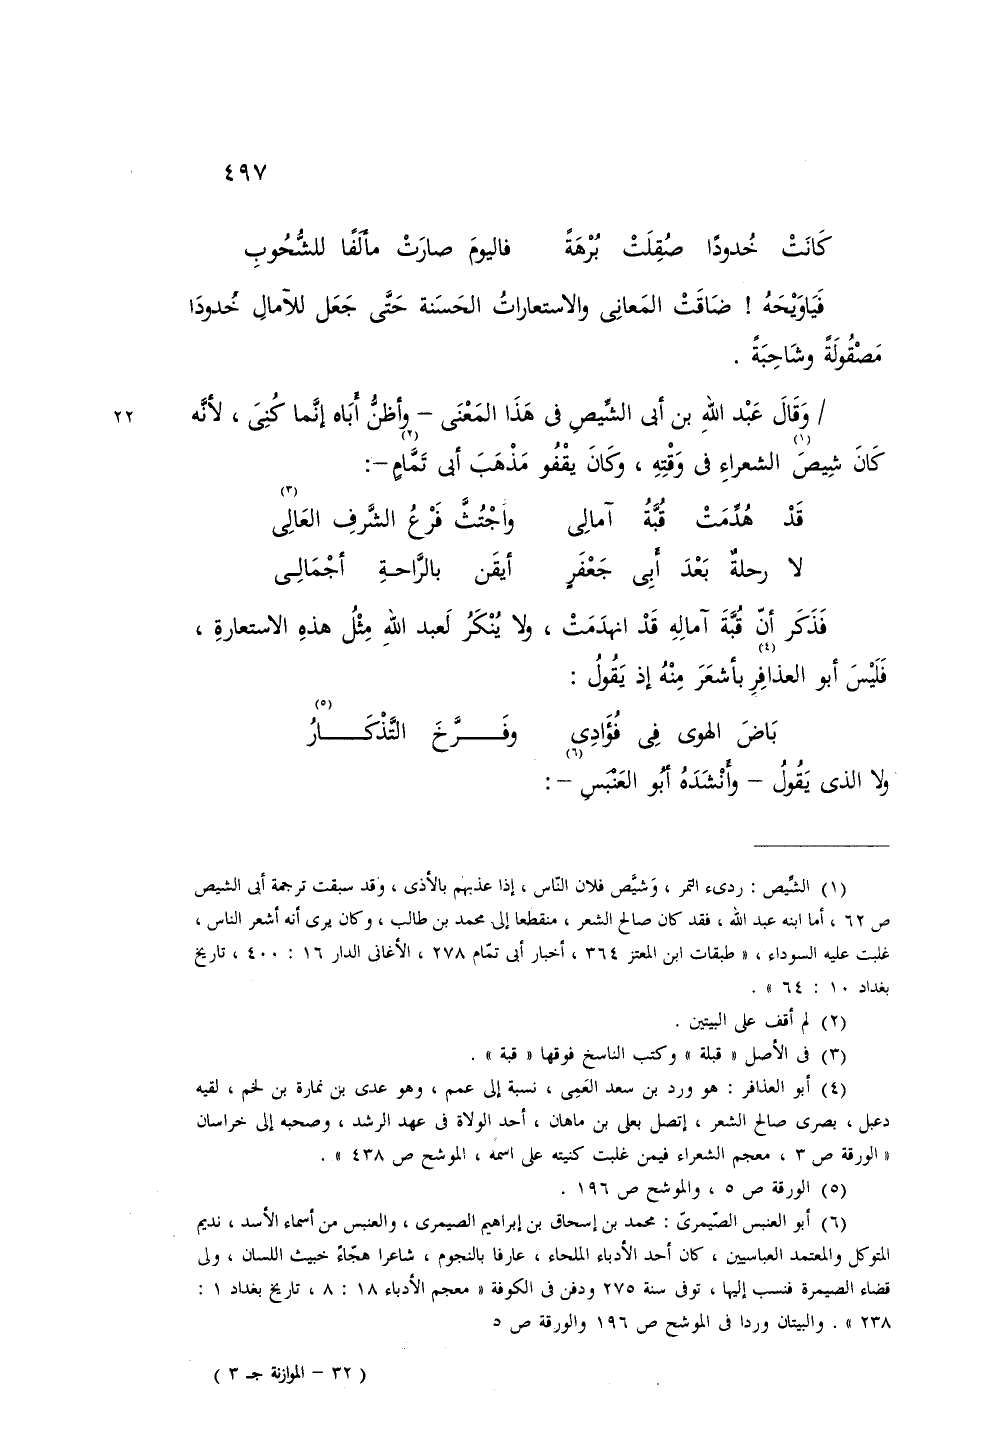 ٤٩٧
كَانَتْ خُدودًا صُقِلَتْ بُرْهَةً فاليومَ صارَتْ مألَفًا للشُّحُوبِ
فَيَاوَيْحَهُ ! ضَاقَتْ المَعانِى والاستعاراتُ الحَسَنة حَتَّى جَعَل للآمالِ خُدودَا
مَصْقُولَةً وشَاحِبَةً .
/ وَقَالَ عَبْد اللهِ بن أبى الشِّيصِ فى هَذَا المَعْنَى – وأظنُّ أَبَاه إنَّما كُنِىَ ، لأنَّه ٢٢
كَانَ شِيصَ (١) الشعراءِ فى وَقْتِهِ ، وكَانَ يقْفُو مَذْهَبَ أبى تَمَّامٍ (٢) –:
قَدْ هُدِّمَتْ قُبَّةُ آمالِى واجْتُثَّ فَرْعُ الشَّرفِ العَالِى (٣)
لا رحلةٌ بَعْدَ أَبِى جَعْفَرٍ أيقَن بالرَّاحةِ أجْمَالِى
فَذَكَر أنّ قُبَّةَ آمالِهِ قَدْ انهدَمَتْ ، ولا يُنْكَرُ لَعبد اللهِ مِثْلُ هذهِ الاستعارةِ ،
فَلَيْسَ أبو العذافِرِ (٤) بأشعَرَ مِنْهُ إذ يَقُولُ :
بَاضَ الهوى فِى فُؤَادِى وفَرَّخَ التَّذْكَارُ (٥)
ولا الذى يَقُولُ – وأَنْشَدَهُ أبُو العَنْبَسِ (٦) –:
(١) الشِّيص : ردىء التمر ، وَشيَّص فلان النّاس ، إذا عذبهم بالأذى ، وقد سبقت ترجمة أبى الشيص
ص ٦٢ ، أما ابنه عبد الله ، فقد كان صالح الشعر ، منقطعا إلى محمد بن طالب ، وكان يرى أنه أشعر الناس ،
غلبت عليه السوداء ، « طبقات ابن المعتز ٣٦٤ ، أخبار أبى تمّام ٢٧٨ ، الأغانى الدار ١٦ : ٤٠٠ ، تاريخ
بغداد ١٠ : ٦٤ » .
(٢) لم أقف على البيتين .
(٣) فى الأصل « قبلة » وكتب الناسخ فوقها « قبة » .
(٤) أبو العذافر : هو ورد بن سعد العَمِى ، نسبة إلى عمم ، وهو عدى بن نمارة بن لخم ، لقيه
دعبل ، بصرى صالح الشعر ، إتصل بعلى بن ماهان ، أحد الولاة فى عهد الرشد ، وصحبه إلى خراسان
« الورقة ص ٣ ، معجم الشعراء فيمن غلبت كنيته على اسمه ، الموشح ص ٤٣٨ » .
(٥) الورقة ص ٥ ، والموشح ص ١٩٦ .
(٦) أبو العنبس الصّيمرىّ : محمد بن إسحاق بن إبراهيم الصيمرى ، والعنبس من أسماء الأسد ، نديم
المتوكل والمعتمد العباسيين ، كان أحد الأدباء الملحاء ، عارفا بالنجوم ، شاعرا هجّاءً خبيث اللسان ، ولى
قضاء الصيمرة فنسب إليها ، توفى سنة ٢٧٥ ودفن فى الكوفة « معجم الأدباء ١٨ : ٨ ، تاريخ بغداد ١ :
٢٣٨ » . والبيتان وردا فى الموشح ص ١٩٦ والورقة ص ٥
( ٣٢ – الموازنة جـ ٣ )